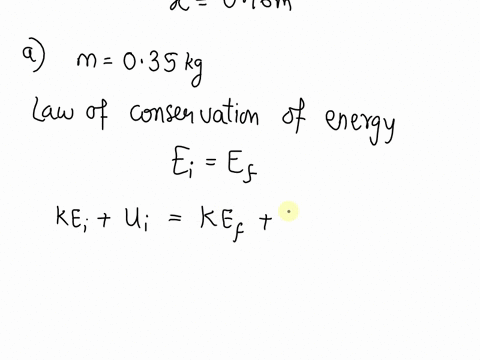 a) m = 0.35 kg
Law of conservation of energy
E_i = E_f
KE_i + U_i = KE_f +